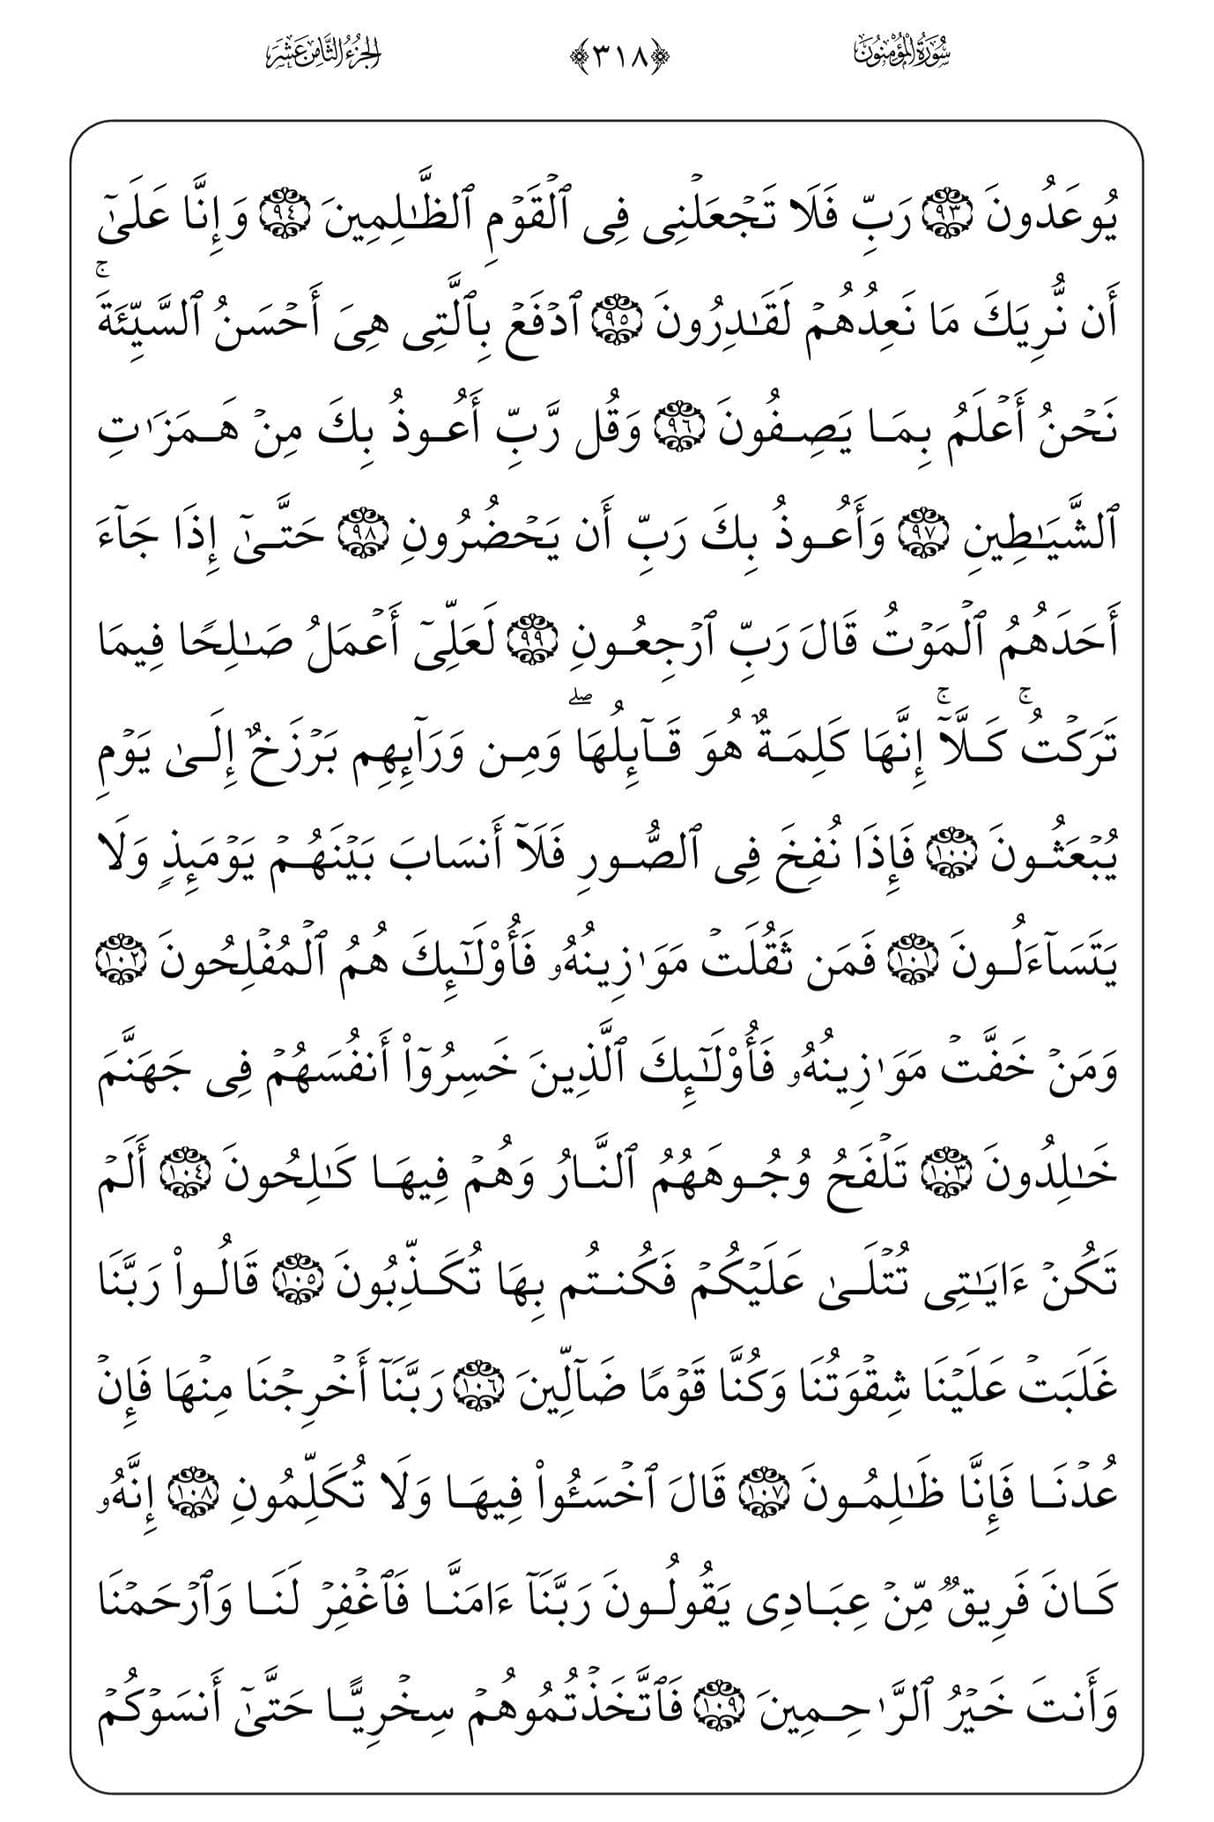 سُورَةُ المُؤْمِنُونَ ﴿٣١٨﴾ الجُزْءُ الثَّامِنَ عَشَرَ
يُوعَدُونَ ٩٣ رَبِّ فَلَا تَجۡعَلۡنِى فِى ٱلۡقَوۡمِ ٱلظَّـٰلِمِينَ ٩٤ وَإِنَّا عَلَىٰٓ
أَن نُّرِيَكَ مَا نَعِدُهُمۡ لَقَـٰدِرُونَ ٩٥ ٱدۡفَعۡ بِٱلَّتِى هِىَ أَحۡسَنُ ٱلسَّيِّئَةَۚ
نَحۡنُ أَعۡلَمُ بِمَا يَصِفُونَ ٩٦ وَقُل رَّبِّ أَعُوذُ بِكَ مِنۡ هَمَزَٰتِ
ٱلشَّيَـٰطِينِ ٩٧ وَأَعُوذُ بِكَ رَبِّ أَن يَحۡضُرُونِ ٩٨ حَتَّىٰٓ إِذَا جَآءَ
أَحَدَهُمُ ٱلۡمَوۡتُ قَالَ رَبِّ ٱرۡجِعُونِ ٩٩ لَعَلِّىٓ أَعۡمَلُ صَـٰلِحًا فِيمَا
تَرَكۡتُۚ كَلَّآۚ إِنَّهَا كَلِمَةٌ هُوَ قَآئِلُهَاۖ وَمِن وَرَآئِهِم بَرۡزَخٌ إِلَىٰ يَوۡمِ
يُبۡعَثُونَ ١٠٠ فَإِذَا نُفِخَ فِى ٱلصُّورِ فَلَآ أَنسَابَ بَيۡنَهُمۡ يَوۡمَئِذٍ وَلَا
يَتَسَآءَلُونَ ١٠١ فَمَن ثَقُلَتۡ مَوَٰزِينُهُۥ فَأُوْلَـٰٓئِكَ هُمُ ٱلۡمُفۡلِحُونَ ١٠٢
وَمَنۡ خَفَّتۡ مَوَٰزِينُهُۥ فَأُوْلَـٰٓئِكَ ٱلَّذِينَ خَسِرُوٓاْ أَنفُسَهُمۡ فِى جَهَنَّمَ
خَـٰلِدُونَ ١٠٣ تَلۡفَحُ وُجُوهَهُمُ ٱلنَّارُ وَهُمۡ فِيهَا كَـٰلِحُونَ ١٠٤ أَلَمۡ
تَكُنۡ ءَايَـٰتِى تُتۡلَىٰ عَلَيۡكُمۡ فَكُنتُم بِهَا تُكَذِّبُونَ ١٠٥ قَالُواْ رَبَّنَا
غَلَبَتۡ عَلَيۡنَا شِقۡوَتُنَا وَكُنَّا قَوۡمًا ضَآلِّينَ ١٠٦ رَبَّنَآ أَخۡرِجۡنَا مِنۡهَا فَإِنۡ
عُدۡنَا فَإِنَّا ظَـٰلِمُونَ ١٠٧ قَالَ ٱخۡسَـُٔواْ فِيهَا وَلَا تُكَلِّمُونِ ١٠٨ إِنَّهُۥ
كَانَ فَرِيقٌ مِّنۡ عِبَادِى يَقُولُونَ رَبَّنَآ ءَامَنَّا فَٱغۡفِرۡ لَنَا وَٱرۡحَمۡنَا
وَأَنتَ خَيۡرُ ٱلرَّٰحِمِينَ ١٠٩ فَٱتَّخَذۡتُمُوهُمۡ سِخۡرِيًّا حَتَّىٰٓ أَنسَوۡكُمۡ